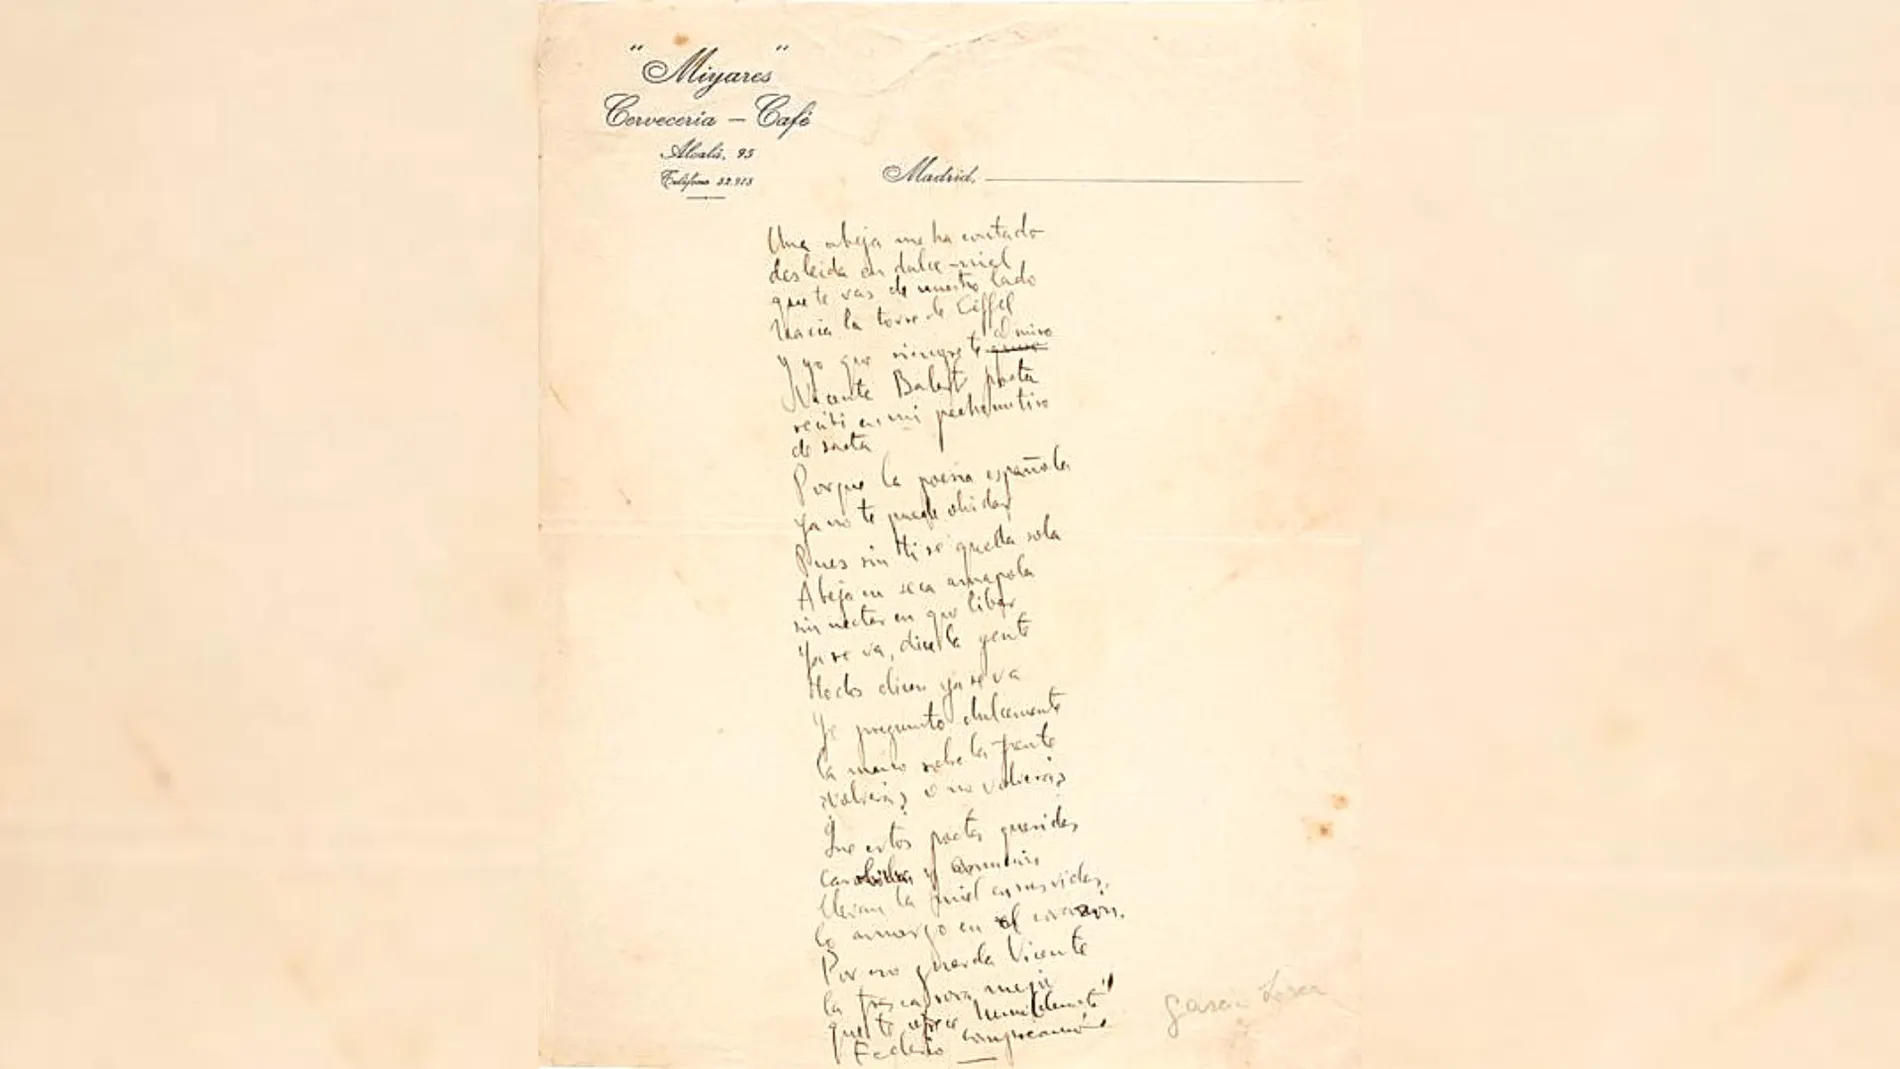 "Miyares"
Cervecería – Café
Alcalá, 95
Teléfono 52.973
Madrid,
Una abeja me ha contado
desleida en dulce miel
que te vas de nuestro lado
hacia la torre de Eiffel
y yo que siempre te admiro
Vicente poeta
sentí en mi pecho un tiro
de saeta
Porque la poesia española
ya no te puede olvidar
Pues sin ti se queda sola
Abeja en seca amapola
sin nectar en que libar
Ya se va, dice la gente
todos dicen ya se va
Yo pregunto dulcemente
la mano sobre la frente
volverás o no volverás
Que estos poetas queridos
y
llevan la miel en sus vidas,
lo amargo en el corazón.
Por eso guarda Vicente
la fresca rosa
que te ofrece humildemente
Federico
Garcia Lorca